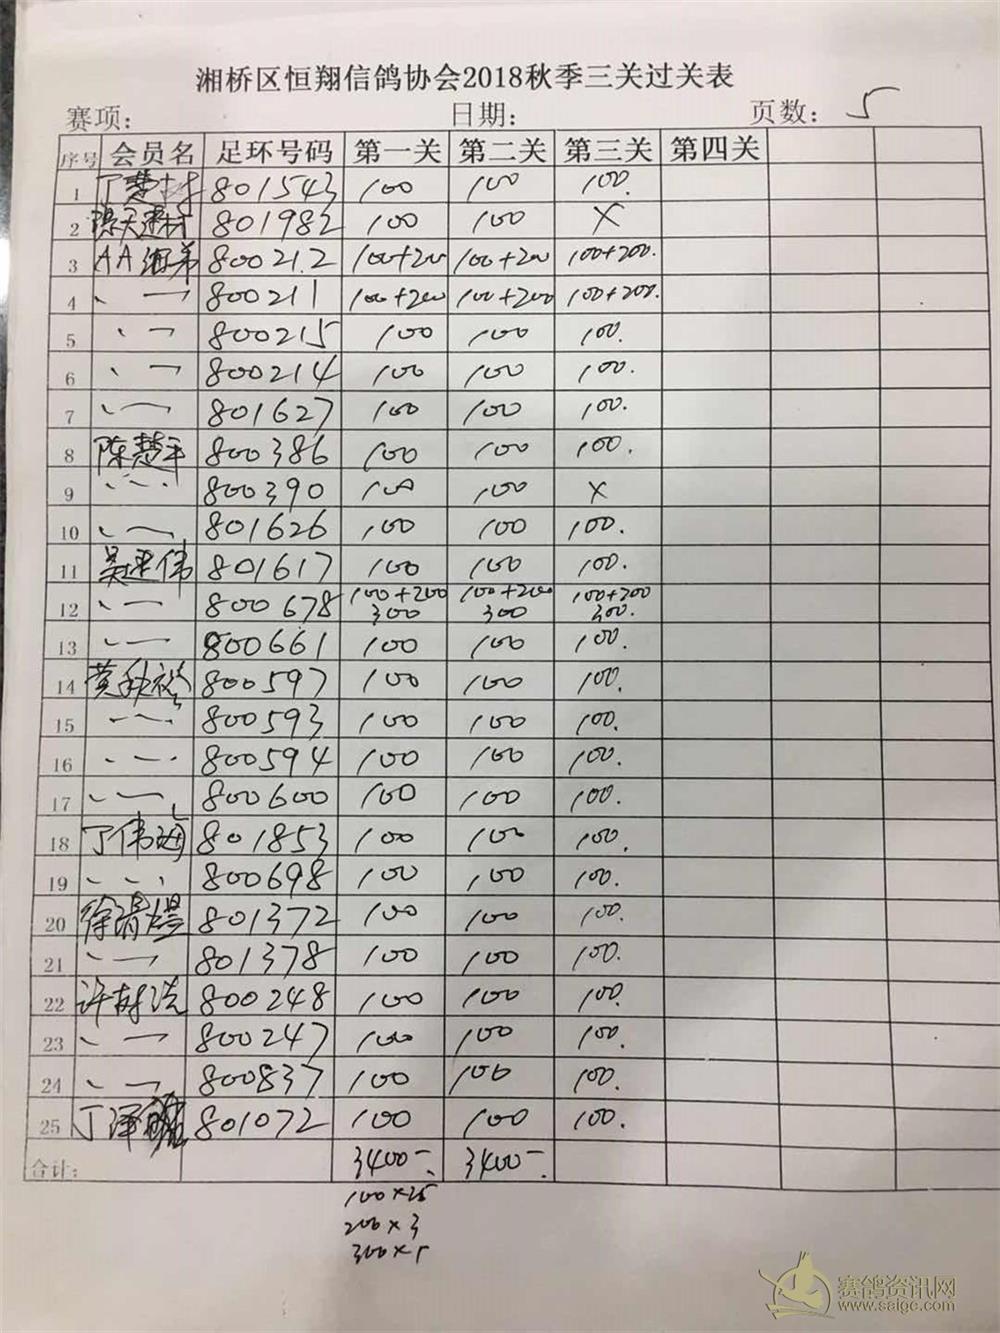 湘桥区恒翔信鸽协会2018秋季三关过关表
赛项: 日期: 页数: 5
序号 会员名 足环号码 第一关 第二关 第三关 第四关
1 丁楚树 801543 100 100 100.
2 801982 100 100 ×
3 AA 800212 100+200 100+200 100+200.
4 、一 800211 100+200 100+200 100+200.
5 、一 800215 100 100 100.
6 、一 800214 100 100 100.
7 、一 801627 100 100 100.
8 陈楚平 800386 100 100 100.
9 、一 800390 100 100 ×
10 、一 801626 100 100 100.
11 吴建伟 801617 100 100 100.
12 、一 800678 100+200 300 100+200 300 100+200 300.
13 、一 800661 100 100 100.
14 黄秋裕 800597 100 100 100.
15 、一 800593 100 100 100.
16 、一 800594 100 100 100.
17 、一 800600 100 100 100.
18 丁伟海 801853 100 100 100.
19 、、、 800698 100 100 100.
20 徐清煜 801372 100 100 100.
21 、一 801378 100 100 100.
22 许树浩 800248 100 100 100.
23 、一 800247 100 100 100.
24 、一 800837 100 100 100.
25 丁泽 801072 100 100 100.
合计: 3400- 3400-
100×25
200×3
300×1
赛鸽资讯网
www.saigc.com